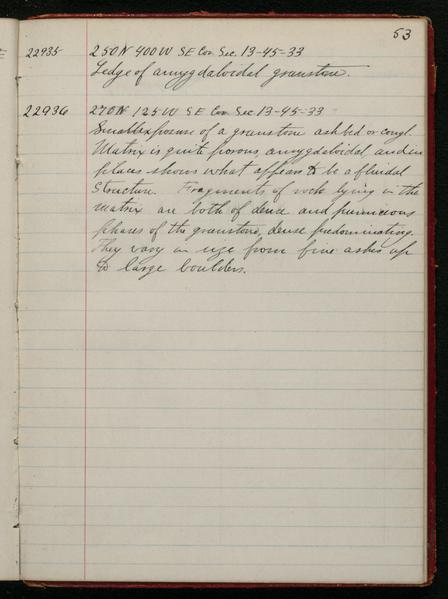 53
22935 250N 400W SE Cor. Sec. 13-45-33
Ledge of amygdaloidal greenstone.
22936 270N 125W SE Cor Sec 13-45-33
Small exposure of a greenstone ash bed or congl.
Matrix is quite porous, amygdaloidal, and in
places shows what appears to be a fluidal
structure. Fragments of rock lying in the
matrix are both of dense and pumiceous
phases of the greenstone, dense predominating.
They vary in size from fine ashes up
to large boulders.